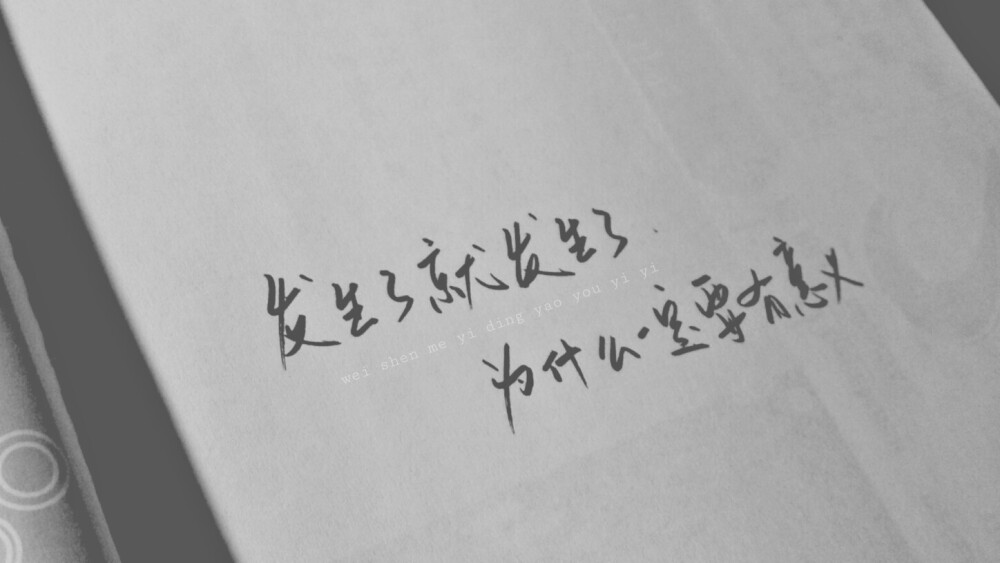 发生了就发生了.
wei shen me yi ding yao you yi yi
为什么一定要有意义